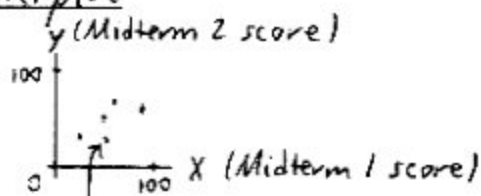 y (Midterm 2 score)
100
0
100
X (Midterm 1 score)